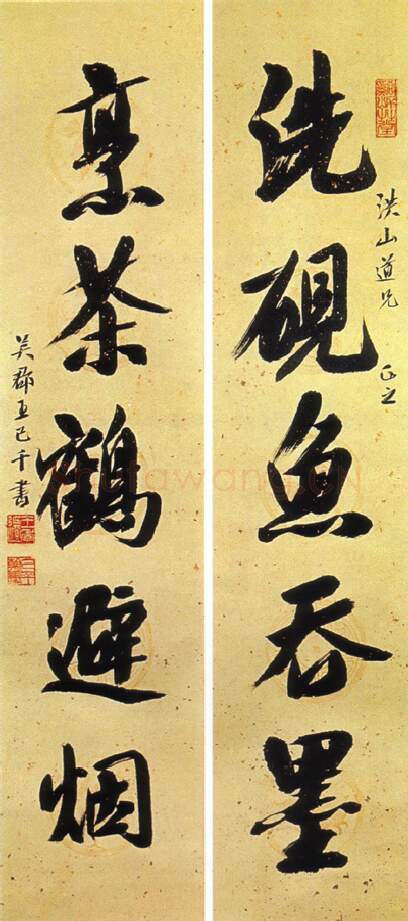 洗硯魚吞墨
山道兄 正之
烹茶鶴避烟
吴郡王己千書